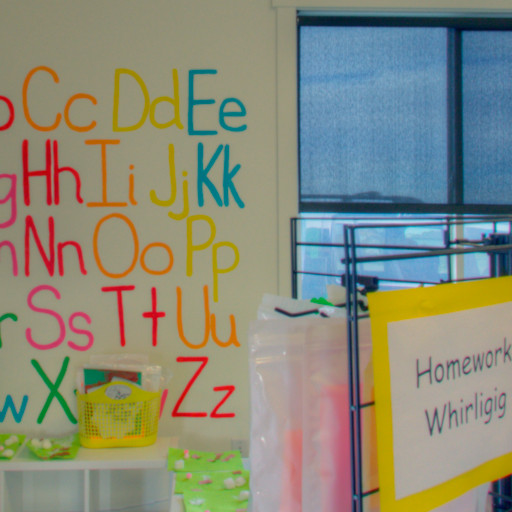 Cc Dd Ee
Hh Ii Jj Kk
Nn Oo Pp
Ss Tt Uu
X Zz
Homework
Whirligig